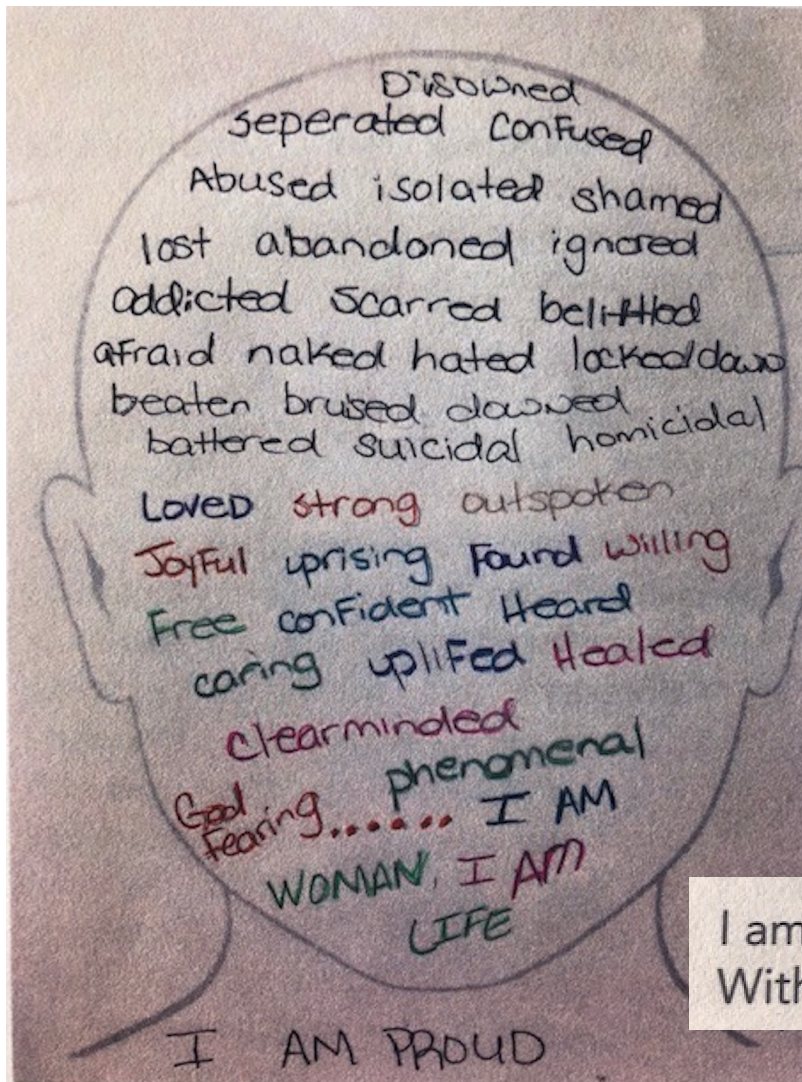 Disowned
seperated confused
Abused isolated shamed
lost abandoned ignored
addicted scarred belittled
afraid naked hated locked down
beaten brused downed
battered suicidal homicidal
Loved strong outspoken
Joyful uprising Found willing
Free confident Heard
caring uplifed Healed
clearminded
phenomenal
God
Fearing....... I AM
WOMAN, I AM
LIFE
I AM PROUD
I am
With